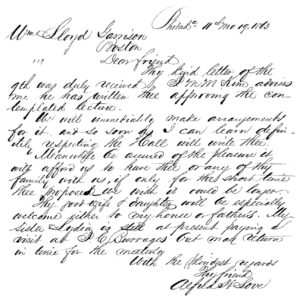 Philada 11th mo 19. 1863
Wm Lloyd Garrison
Boston
Dear friend
Thy kind letter of the
9th was duly received by J. M. McKim advises
me he has written thee approving the con-
templated lecture.
We will immediately make arrangements
for it. and so soon as I can learn defin-
itely respecting the Hall will write thee.
Meanwhile be assured of the pleasure it
will afford us to have thee or any of thy
family with us, if only for the short time
thee proposes we wish it could be longer.
Thy good wife & daughter will be especially
welcome either to my house or fathers. My
sister Lydia is at present paying a
visit at out may return
in time for the meeting
With the kindest regards
Thy friend
Alfred H. Love